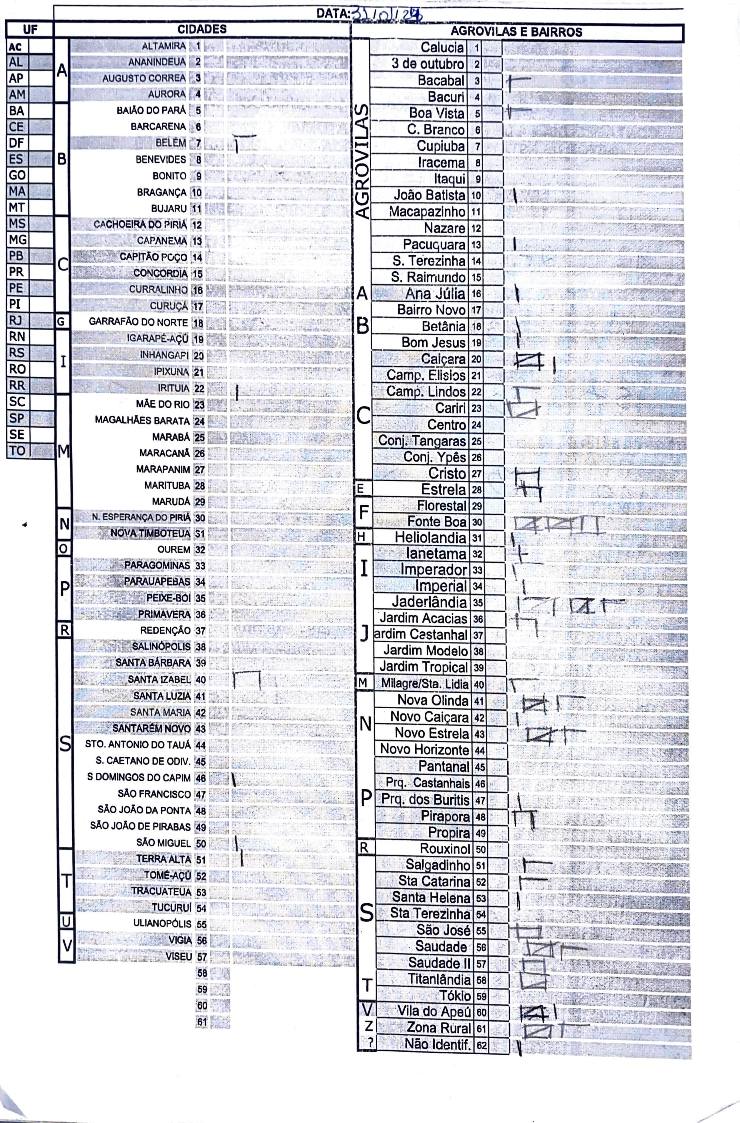 DATA: 31/01/24
UF CIDADES AGROVILAS E BAIRROS
AC
AL
AP
AM
BA
CE
DF
ES
GO
MA
MT
MS
MG
PB
PR
PE
PI
RJ
RN
RS
RO
RR
SC
SP
SE
TO
A
ALTAMIRA 1
ANANINDEUA 2
AUGUSTO CORREA 3
AURORA 4
B
BAIÃO DO PARÁ 5
BARCARENA 6
BELÉM 7
BENEVIDES 8
BONITO 9
BRAGANÇA 10
BUJARU 11
C
CACHOEIRA DO PIRIÁ 12
CAPANEMA 13
CAPITÃO POÇO 14
CONCORDIA 15
CURRALINHO 16
CURUÇÁ 17
G
GARRAFÃO DO NORTE 18
I
IGARAPÉ-AÇÚ 19
INHANGAPI 20
IPIXUNA 21
IRITUIA 22
M
MÃE DO RIO 23
MAGALHÃES BARATA 24
MARABÁ 25
MARACANÃ 26
MARAPANIM 27
MARITUBA 28
MARUDÁ 29
N
N. ESPERANÇA DO PIRIÁ 30
NOVA TIMBOTEUA 31
O
OUREM 32
P
PARAGOMINAS 33
PARAUAPEBAS 34
PEIXE-BOI 35
PRIMAVERA 36
R
REDENÇÃO 37
S
SALINÓPOLIS 38
SANTA BÁRBARA 39
SANTA IZABEL 40
SANTA LUZIA 41
SANTA MARIA 42
SANTARÉM NOVO 43
STO. ANTONIO DO TAUÁ 44
S. CAETANO DE ODIV. 45
S DOMINGOS DO CAPIM 46
SÃO FRANCISCO 47
SÃO JOÃO DA PONTA 48
SÃO JOÃO DE PIRABAS 49
SÃO MIGUEL 50
T
TERRA ALTA 51
TOMÉ-AÇÚ 52
TRACUATEUA 53
TUCURUÍ 54
U
ULIANÓPOLIS 55
V
VIGIA 56
VISEU 57
58
59
60
61
AGROVILAS
Calucia 1
3 de outubro 2
Bacabal 3
Bacuri 4
Boa Vista 5
C. Branco 6
Cupiuba 7
Iracema 8
Itaqui 9
João Batista 10
Macapazinho 11
Nazare 12
Pacuquara 13
S. Terezinha 14
S. Raimundo 15
A Ana Júlia 16
Bairro Novo 17
B Betânia 18
Bom Jesus 19
Caiçara 20
Camp. Elisios 21
Camp. Lindos 22
C Cariri 23
Centro 24
Conj. Tangaras 25
Conj. Ypês 26
Cristo 27
E Estrela 28
F Florestal 29
Fonte Boa 30
H Heliolandia 31
Ianetama 32
I Imperador 33
Imperial 34
Jaderlândia 35
Jardim Acacias 36
J ardim Castanhal 37
Jardim Modelo 38
Jardim Tropical 39
M Milagre/Sta. Lidia 40
Nova Olinda 41
N Novo Caiçara 42
Novo Estrela 43
Novo Horizonte 44
Pantanal 45
Prq. Castanhais 46
P Prq. dos Buritis 47
Pirapora 48
Propira 49
R Rouxinol 50
Salgadinho 51
Sta Catarina 52
Santa Helena 53
S Sta Terezinha 54
São José 55
Saudade 56
Saudade II 57
T Titanlândia 58
Tókio 59
V Vila do Apeú 60
Z Zona Rural 61
? Não Identif. 62